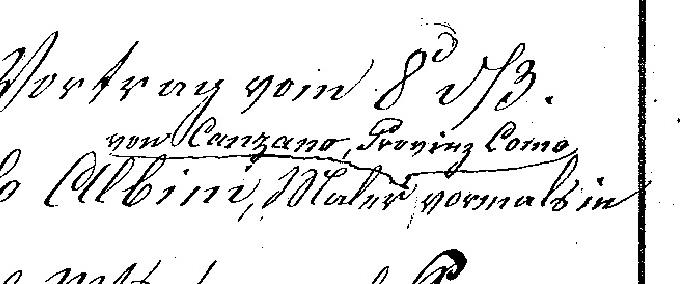 Vortrag vom 8 d/3.
von Canzano, Provinz Como
Albini, Maler, vormals in